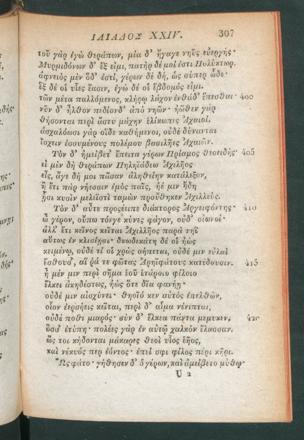 ΙΛΙΑΔΟΣ XXIV. 307
τοῦ γὰρ ἐγὼ θεράπων, μία δ' ἤγαγε νηῦς εὐεργής·
Μυρμιδόνων δ' ἔξ εἰμι, πατὴρ δέ μοι ἐστὶ Πολύκτωρ.
ἀφνειὸς μὲν ὅδ' ἐστί, γέρων δὲ δή, ὡς σύπερ ὧδε·
ἓξ δέ οἱ υἷες ἔασιν, ἐγὼ δέ οἱ ἕβδομός εἰμι.
τῶν μέτα παλλόμενος, κλήρῳ λάχον ἐνθάδ' ἕπεσθαι· 400
νῦν δ' ἦλθον πεδίονδ' ἀπὸ νηῶν· ἠῶθεν γὰρ
θήσονται περὶ ἄστυ μάχην ἑλίκωπες Ἀχαιοί.
ἀσχαλόωσι γὰρ οἵδε καθήμενοι, οὐδὲ δύνανται
ἴσχειν ἐσσυμένους πολέμου βασιλῆες Ἀχαιῶν.
Τὸν δ' ἠμείβετ' ἔπειτα γέρων Πρίαμος θεοειδής· 405
εἰ μὲν δὴ θεράπων Πηληϊάδεω Ἀχιλῆος
εἶς, ἄγε δή μοι πᾶσαν ἀληθείην κατάλεξον,
ἢ ἔτι πὰρ νήεσσιν ἐμὸς παῖς, ἠέ μιν ἤδη
ᾗσι κυσὶν μελεϊστὶ ταμὼν προὔθηκεν Ἀχιλλεύς.
Τὸν δ' αὖτε προσέειπε διάκτορος Ἀργειφόντης· 410
ὦ γέρον, οὔπω τόνγε κύνες φάγον, οὐδ' οἰωνοί·
ἀλλ' ἔτι κεῖνος κεῖται Ἀχιλλῆος παρὰ νηῒ
αὔτως ἐν κλισίῃσι· δυωδεκάτη δέ οἱ ἠὼς
κειμένῳ, οὐδέ τί οἱ χρὼς σήπεται, οὐδέ μιν εὐλαὶ
ἔσθουσ', αἵ ῥά τε φῶτας ἀρηϊφάτους κατέδουσιν. 415
ἦ μέν μιν περὶ σῆμα ἑοῦ ἑτάροιο φίλοιο
ἕλκει ἀκηδέστως, ἠὼς ὅτε δῖα φανήῃ·
οὐδέ μιν αἰσχύνει· θηοῖό κεν αὐτὸς ἐπελθών,
οἷον ἐερσήεις κεῖται, περὶ δ' αἷμα νένιπται,
οὐδέ ποθι μιαρός· σὺν δ' ἕλκεα πάντα μέμυκεν, 420
ὅσσ' ἐτύπη· πολέες γὰρ ἐν αὐτῷ χαλκὸν ἔλασσαν.
ὥς τοι κήδονται μάκαρες θεοὶ υἷος ἑῆος,
καὶ νέκυός περ ἐόντος· ἐπεί σφι φίλος πέρι κῆρι.
Ὣς φάτο· γήθησεν δ' ὁ γέρων, καὶ ἀμείβετο μύθῳ·
U 2